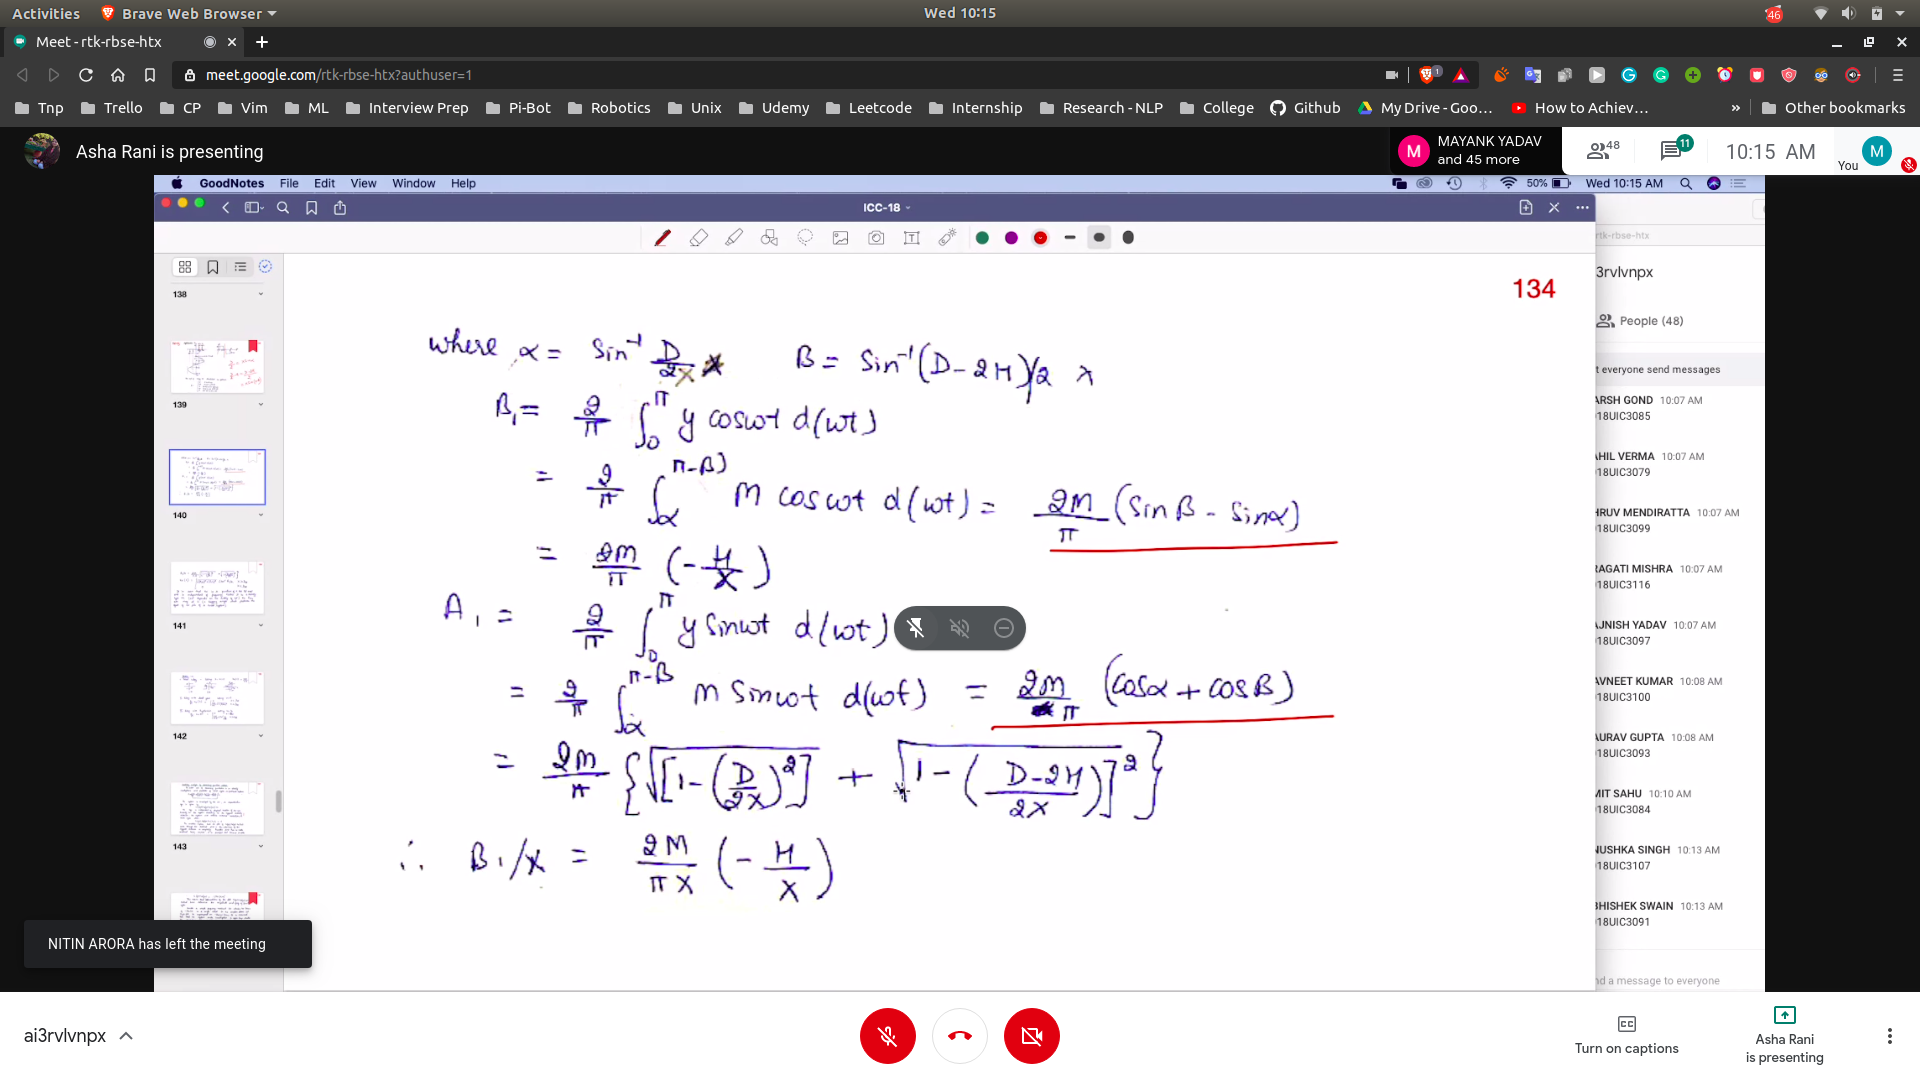 Activities Brave Web Browser Wed 10:15 46
Meet - rtk-rbse-htx
meet.google.com/rtk-rbse-htx?authuser=1
Tnp Trello CP Vim ML Interview Prep Pi-Bot Robotics Unix Udemy Leetcode Internship Research - NLP College Github My Drive - Goo… How to Achiev… » Other bookmarks
Asha Rani is presenting
M MAYANK YADAV and 45 more 48 11 10:15 AM You M
GoodNotes File Edit View Window Help 50% Wed 10:15 AM
ICC-18
rtk-rbse-htx
134
3rvlvnpx
People (48)
t everyone send messages
138
139
140
141
142
143
where α = Sin⁻¹ D/2X B = Sin⁻¹ (D-2H)/2 X
B₁ = 2/π ∫₀^π y coswt d(wt)
= 2/π ∫α^(π-B) M coswt d(wt) = 2M/π (SinB - Sinα)
= 2M/π (-H/X)
A₁ = 2/π ∫₀^π y Sinwt d(wt)
= 2/π ∫α^(π-B) M Sinwt d(wt) = 2M/π (Cosα + cosB)
= 2M/π {√[1-(D/2X)²] + √1-(D-2H/2X)]²}
∴ B₁/X = 2M/πX (-H/X)
ARSH GOND 10:07 AM
18UIC3085
AHIL VERMA 10:07 AM
18UIC3079
HRUV MENDIRATTA 10:07 AM
18UIC3099
RAGATI MISHRA 10:07 AM
18UIC3116
AJNISH YADAV 10:07 AM
18UIC3097
AVNEET KUMAR 10:08 AM
18UIC3100
AURAV GUPTA 10:08 AM
18UIC3093
MIT SAHU 10:10 AM
18UIC3084
NUSHKA SINGH 10:13 AM
18UIC3107
BHISHEK SWAIN 10:13 AM
18UIC3091
nd a message to everyone
NITIN ARORA has left the meeting
ai3rvlvnpx
Turn on captions
Asha Rani
is presenting